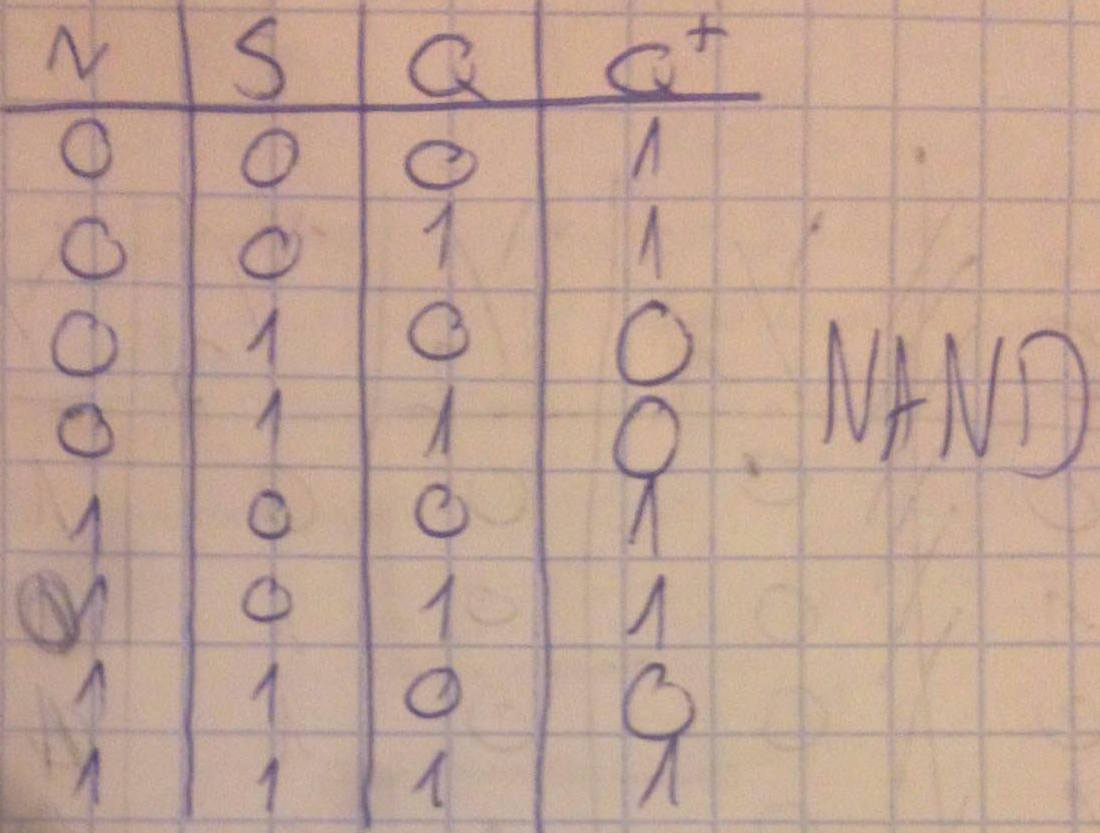 N S Q Q+
0 0 0 1
0 0 1 1
0 1 0 0
0 1 1 0
1 0 0 1
1 0 1 1
1 1 0 0
1 1 1 1
NAND